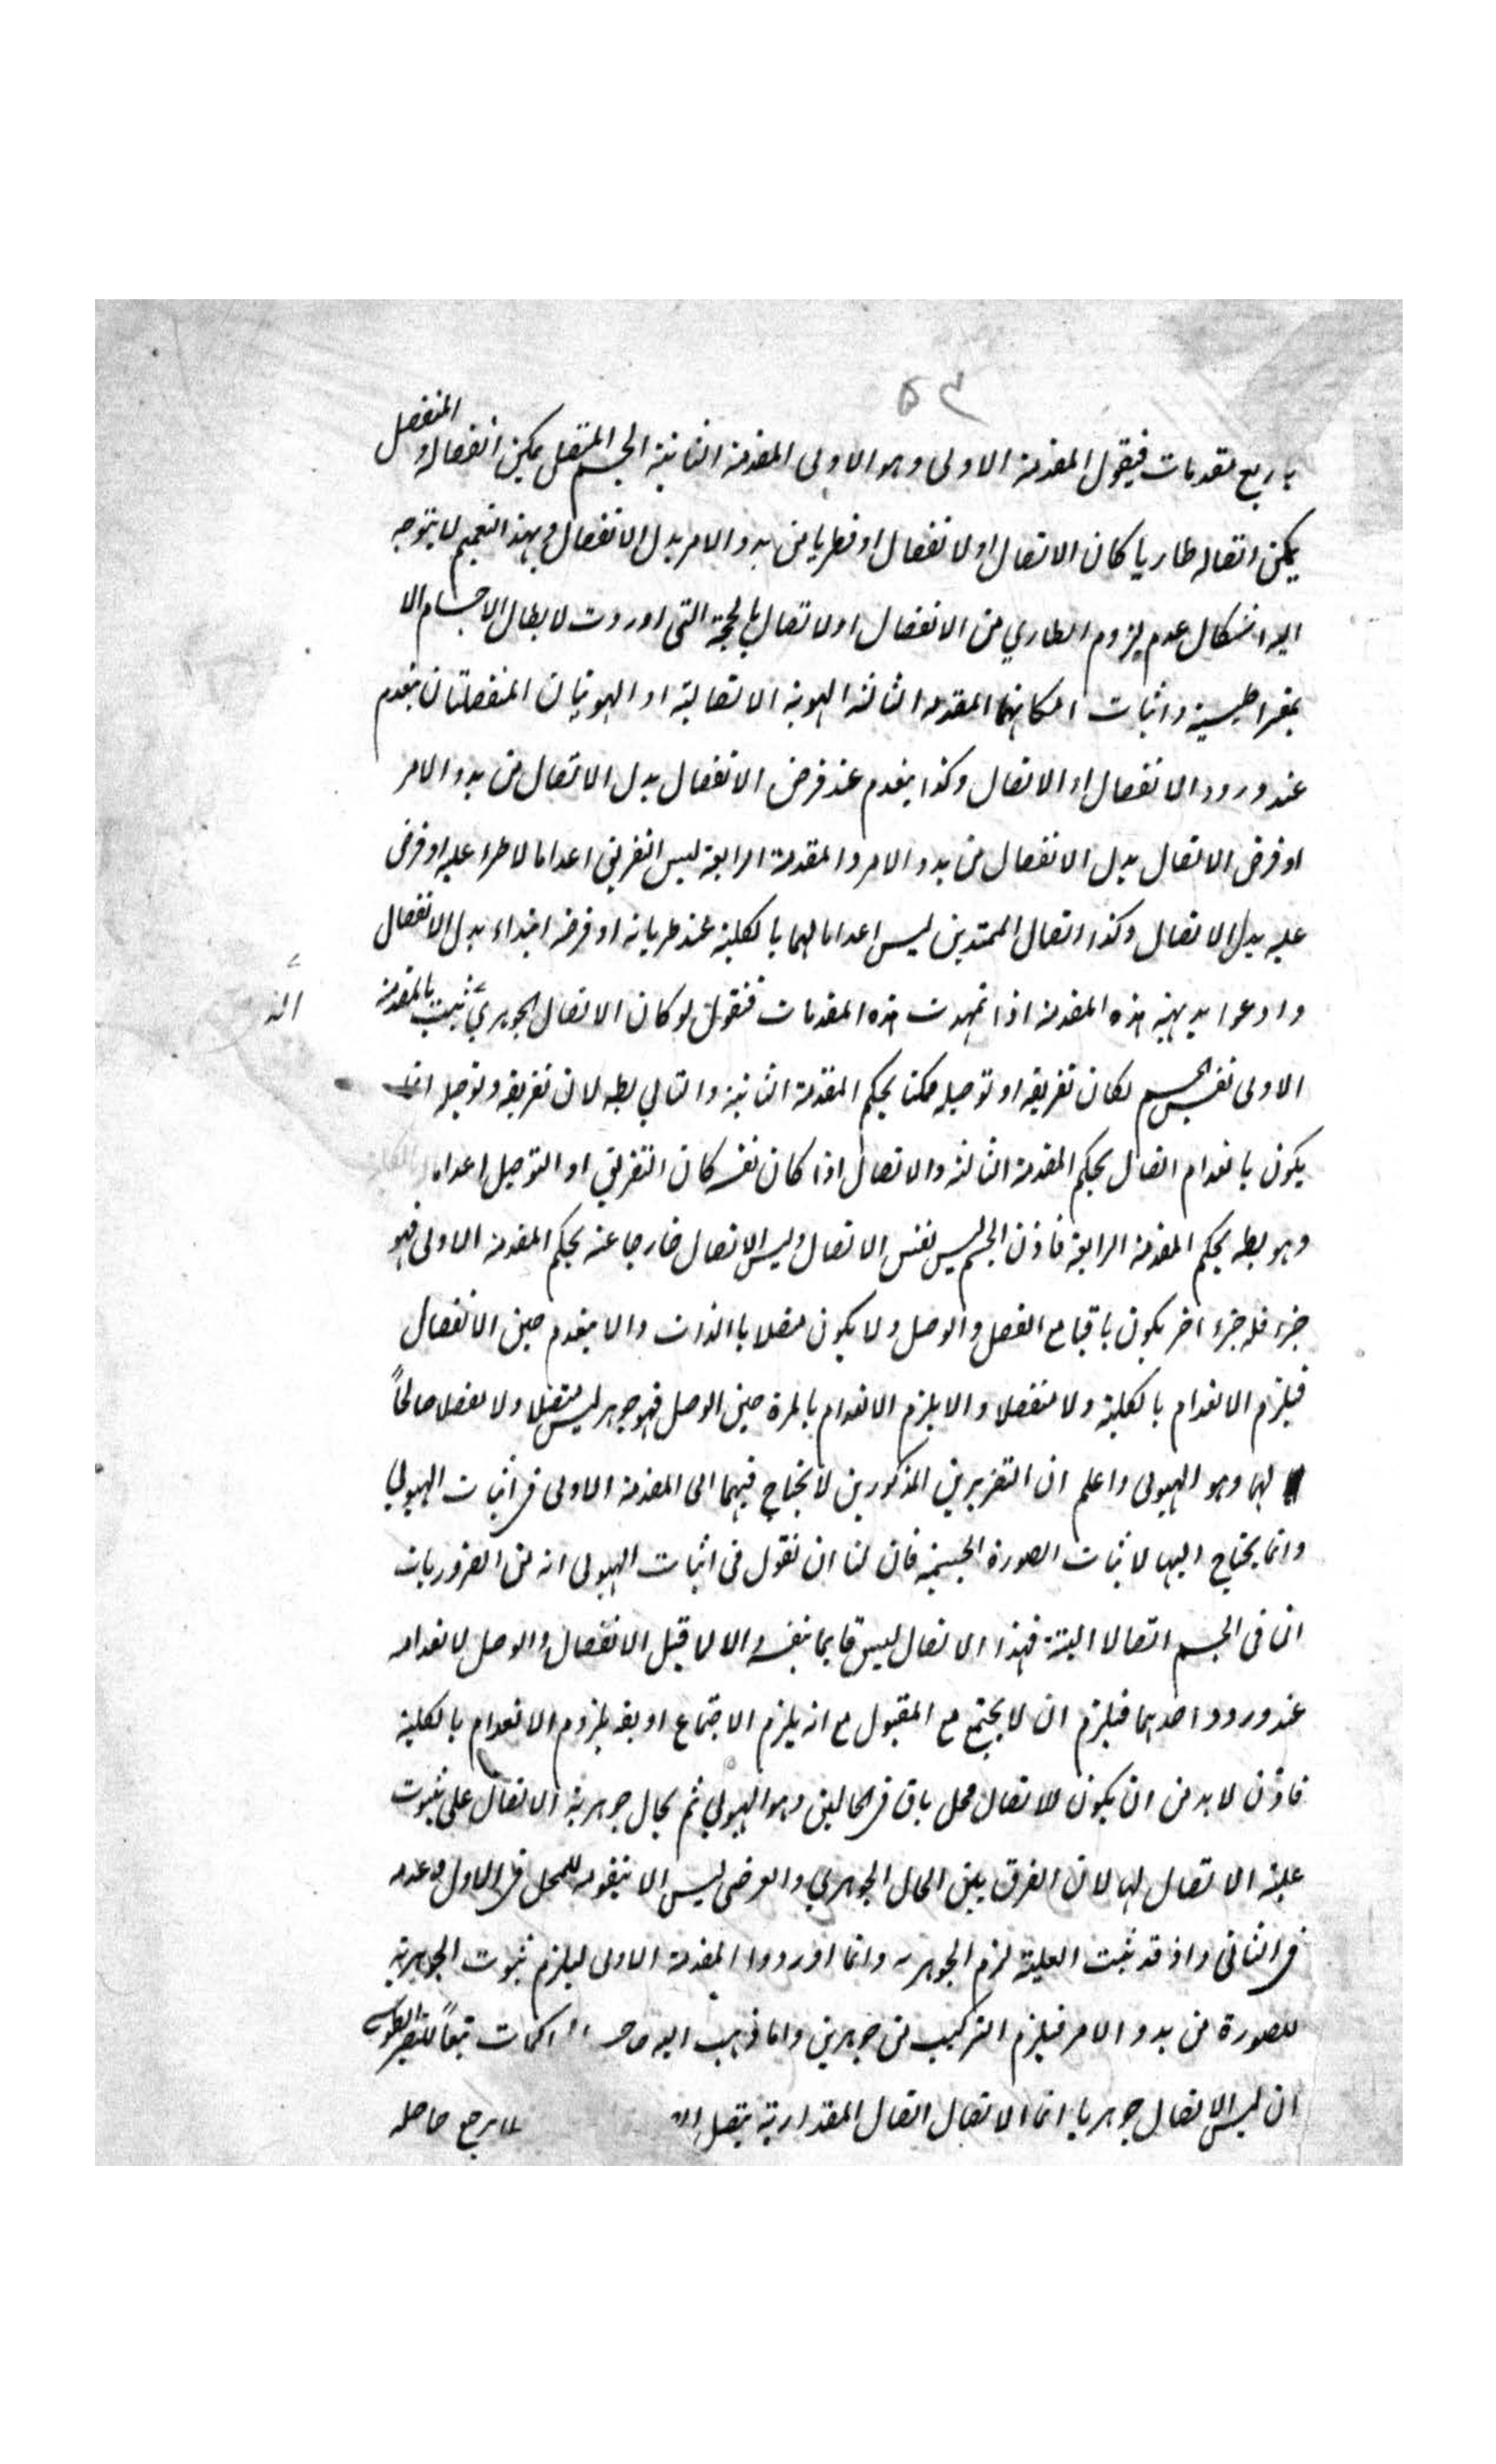 ۵۳
باربع مقدمات فيقول المقدمة الاولى وهو الاولى المقدمة الثانية الجسم المتصل يمكن انفصاله والمنفصل
يمكن اتصاله طاريا كان الاتصال او الانفصال او فطريا من بدو الامر بدل الانفصال وبهذا التعميم لا يتوجه
اليه اشكال عدم لزوم الطاري من الانفصال او الاتصال بالحجة التى اوردت لابطال الاجسام الا
يمقراطيسية واثبات امكانهما المقدمة الثالثة الهوية الاتصالية او الهويتان المنفصلتان ينعدم
عند ورود الانفصال او الاتصال وكذا ينعدم عند فرض الانفصال بدل الاتصال من بدو الامر
او فرض الاتصال بدل الانفصال من بدو الامر والمقدمة الرابعة ليس التفريق اعداما لاطراء عليه او فرض
عليه بدل الاتصال وكذا اتصال الممتدين ليس اعداما لهما بالكلية عند طريانه او فرضه ابتداء بدل الانفصال
وادعوا بديهية هذه المقدمة اذا تمهدت هذه المقدمات فنقول لو كان الاتصال الجوهري يثبت بالمقدمة
الاولى نفس الجسم لكان تفريقه او توصيله ممكنا بحكم المقدمة الثانية والتالي بطه لان تفريقه وتوصيله انما
يكون بانعدام اتصال بحكم المقدمة الثالثة والاتصال اذا كان نفسه كان التفريق او التوصيل اعداما
وهو بطه بحكم المقدمة الرابعة فاذن الجسم ليس نفس الاتصال وليس الاتصال خارجا عنه بحكم المقدمة الاولى فهو
جزء فله جزء اخر يكون باقيا مع الفصل والوصل ولا يكون متصلا بالذات والا ينعدم حين الانفصال
فيلزم الانعدام بالكلية ولا منفصلا والا يلزم الانعدام بالمرة حين الوصل فهو جوهر ليس متصلا ولا منفصلا صالحاً
لهما وهو الهيولى واعلم ان التقريرين المذكورين لا يحتاج فيهما الى المقدمة الاولى فى اثبات الهيولي
وانما يحتاج اليها لاثبات الصورة الجسمية فان لنا ان نقول فى اثبات الهيولى انه من الضروريات
ان فى الجسم اتصالا البتة فهذا الاتصال ليس قايما بنفسه والا لما قبل الانفصال والوصل لانعدامه
عند ورود احدهما فيلزم ان لا يجتمع مع المقبول مع انه يلزم الاجتماع او بقـ يلزم الانعدام بالكلية
فاذن لا بد من ان يكون للاتصال محل باق فى الحالين وهو الهيولي ثم يحال جوهرية الاتصال على ثبوت
علية الاتصال لها لان الفرق بين الحال الجوهري والعرضى ليس الا بتقويمه للمحل فى الاول وعدمه
فى الثانى واذ قد ثبت العلية لزم الجوهرية وانما اوردوا المقدمة الاولى ليلزم ثبوت الجوهرية
للصورة من بدو الامر فيلزم التركيب من جوهرين واما ذهب اليه صاحب المحاكمات تبعاً للنصير الطوسى
ان ليس الاتصال جوهريا انما الاتصال اتصال المقدارية يتصل يرجع حاصله